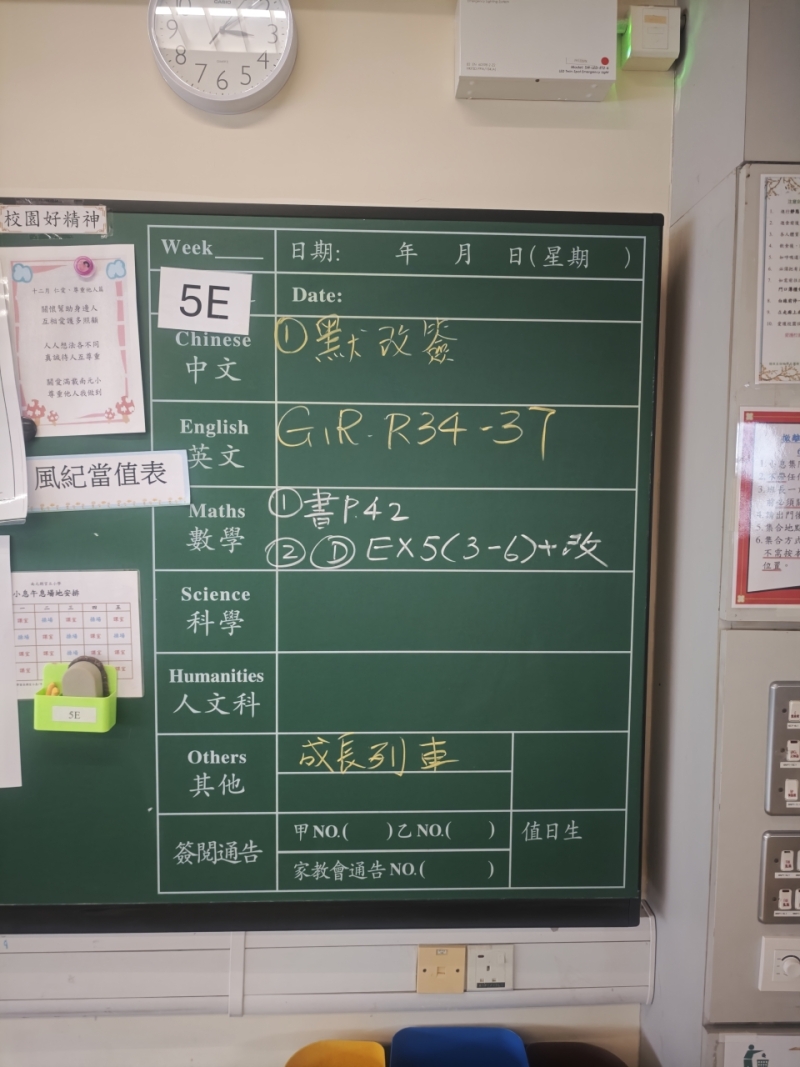 9
8
7
6
5
4
3
校園好精神
十二月 仁愛·尊重他人篇
關懷幫助身邊人
互相愛護多照顧
人人想法各不同
真誠待人且尊重
關愛滿載南元小
尊重他人我做到
風紀當值表
小息午息場地安排
一 二 三 四 五
5E
Week____ 日期: 年 月 日(星期 )
5E
Date:
Chinese
中文
①默改簽
English
英文
G.R. R34-37
Maths
數學
①書P.42
②Ⓓ EX5(3-6)+改
Science
科學
Humanities
人文科
Others
其他
成長列車
簽閱通告
甲NO.( )乙NO.( ) 值日生
家教會通告NO.( )